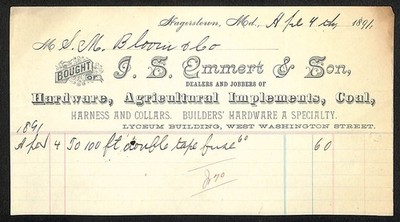 Hagerstown, Md., Apl 4th 1891
M S. M. Bloom & Co
BOUGHT OF J. S. Emmert & Son,
DEALERS AND JOBBERS OF
Hardware, Agricultural Implements, Coal,
HARNESS AND COLLARS. BUILDERS' HARDWARE A SPECIALTY.
LYCEUM BUILDING, WEST WASHINGTON STREET.
1891
Apl 4 50 100 ft double tape fuse 60 60